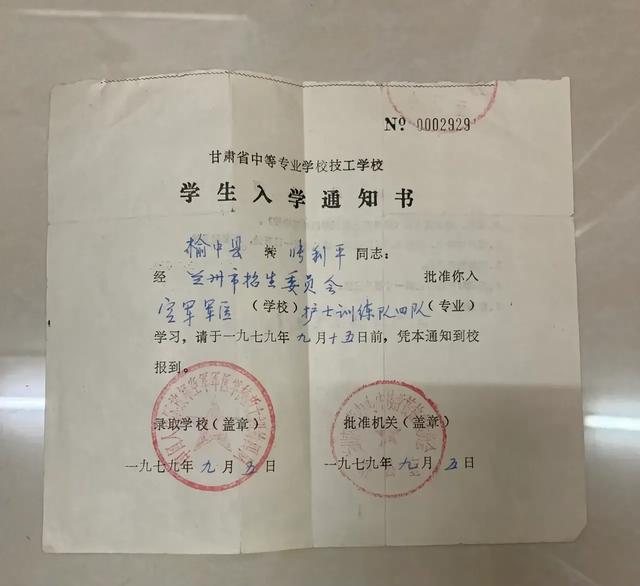 № 0002929
甘肃省中等专业学校技工学校
学生入学通知书
榆中县 转 张利平 同志：
经 兰州市招生委员会 批准你入
空军军医（学校）护士训练队四队（专业）
学习，请于一九七九年九月十五日前，凭本通知到校
报到。
录取学校（盖章） 批准机关（盖章）
一九七九年九月五日 一九七九年九月五日